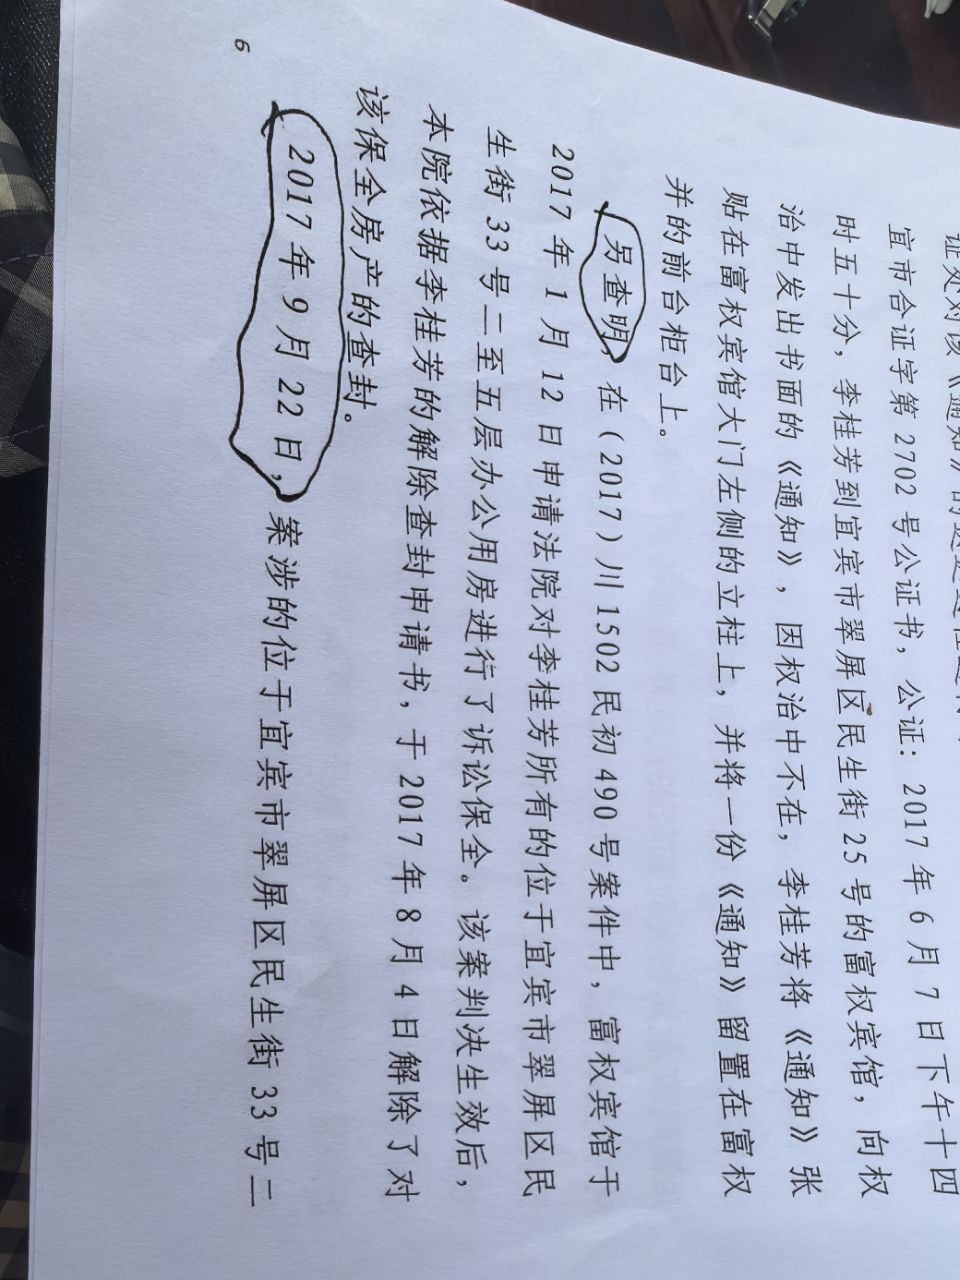 证处对该《通知》的送达过程进行
宜市合证字第 2702 号公证书，公证：2017 年 6 月 7 日下午十四
时五十分，李桂芳到宜宾市翠屏区民生街 25 号的富权宾馆，向权
治中发出书面的《通知》，因权治中不在，李桂芳将《通知》张
贴在富权宾馆大门左侧的立柱上，并将一份《通知》留置在富权
并的前台柜台上。
另查明，在（2017）川 1502 民初 490 号案件中，富权宾馆于
2017 年 1 月 12 日申请法院对李桂芳所有的位于宜宾市翠屏区民
生街 33 号二至五层办公用房进行了诉讼保全。该案判决生效后，
本院依据李桂芳的解除查封申请书，于 2017 年 8 月 4 日解除了对
该保全房产的查封。
2017 年 9 月 22 日，案涉的位于宜宾市翠屏区民生街 33 号二
6